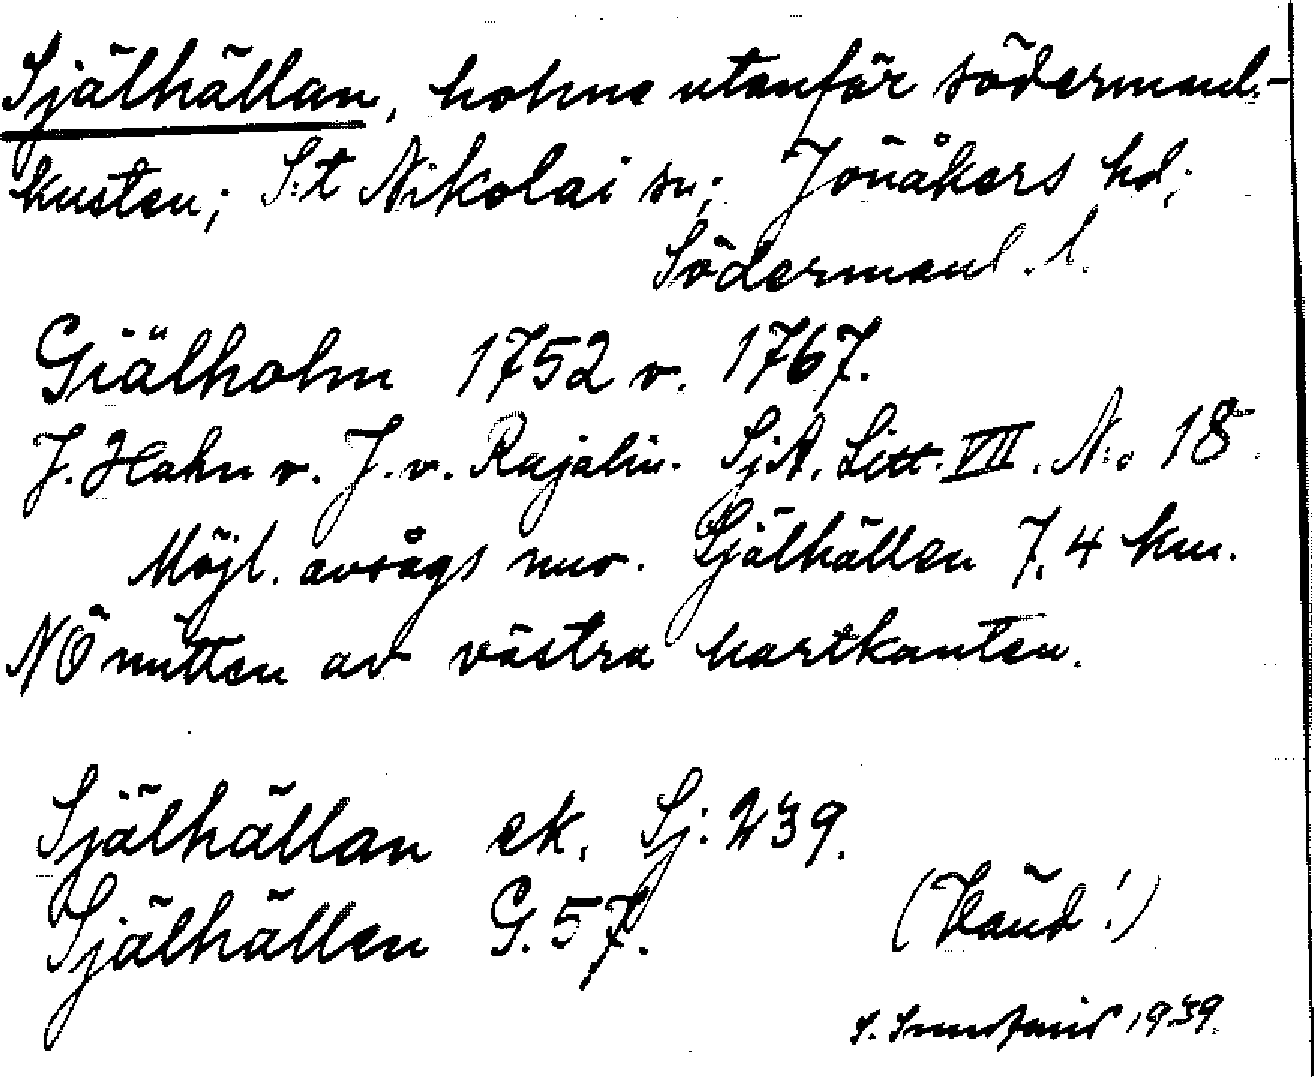 Själhällan, holme utanför södermanl.-
kusten; S:t Nikolai sn; Jönåkers hd;
Södermanl. l.
Giälholm 1752 o. 1767.
J. Hahn o. J. v. Rajalin. SjA. Litt. VII. No 18.
Möjl. avsågs nuv. Själhällen 7,4 km.
NÖ mitten av västra kartkanten.
Själhällan ek. Sj: 239.
Själhällen G. 57.
(Vänd!)
1939.